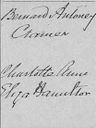 Bernard Antoney
Cramer
Charlotte Anne
Eliza Hamilton